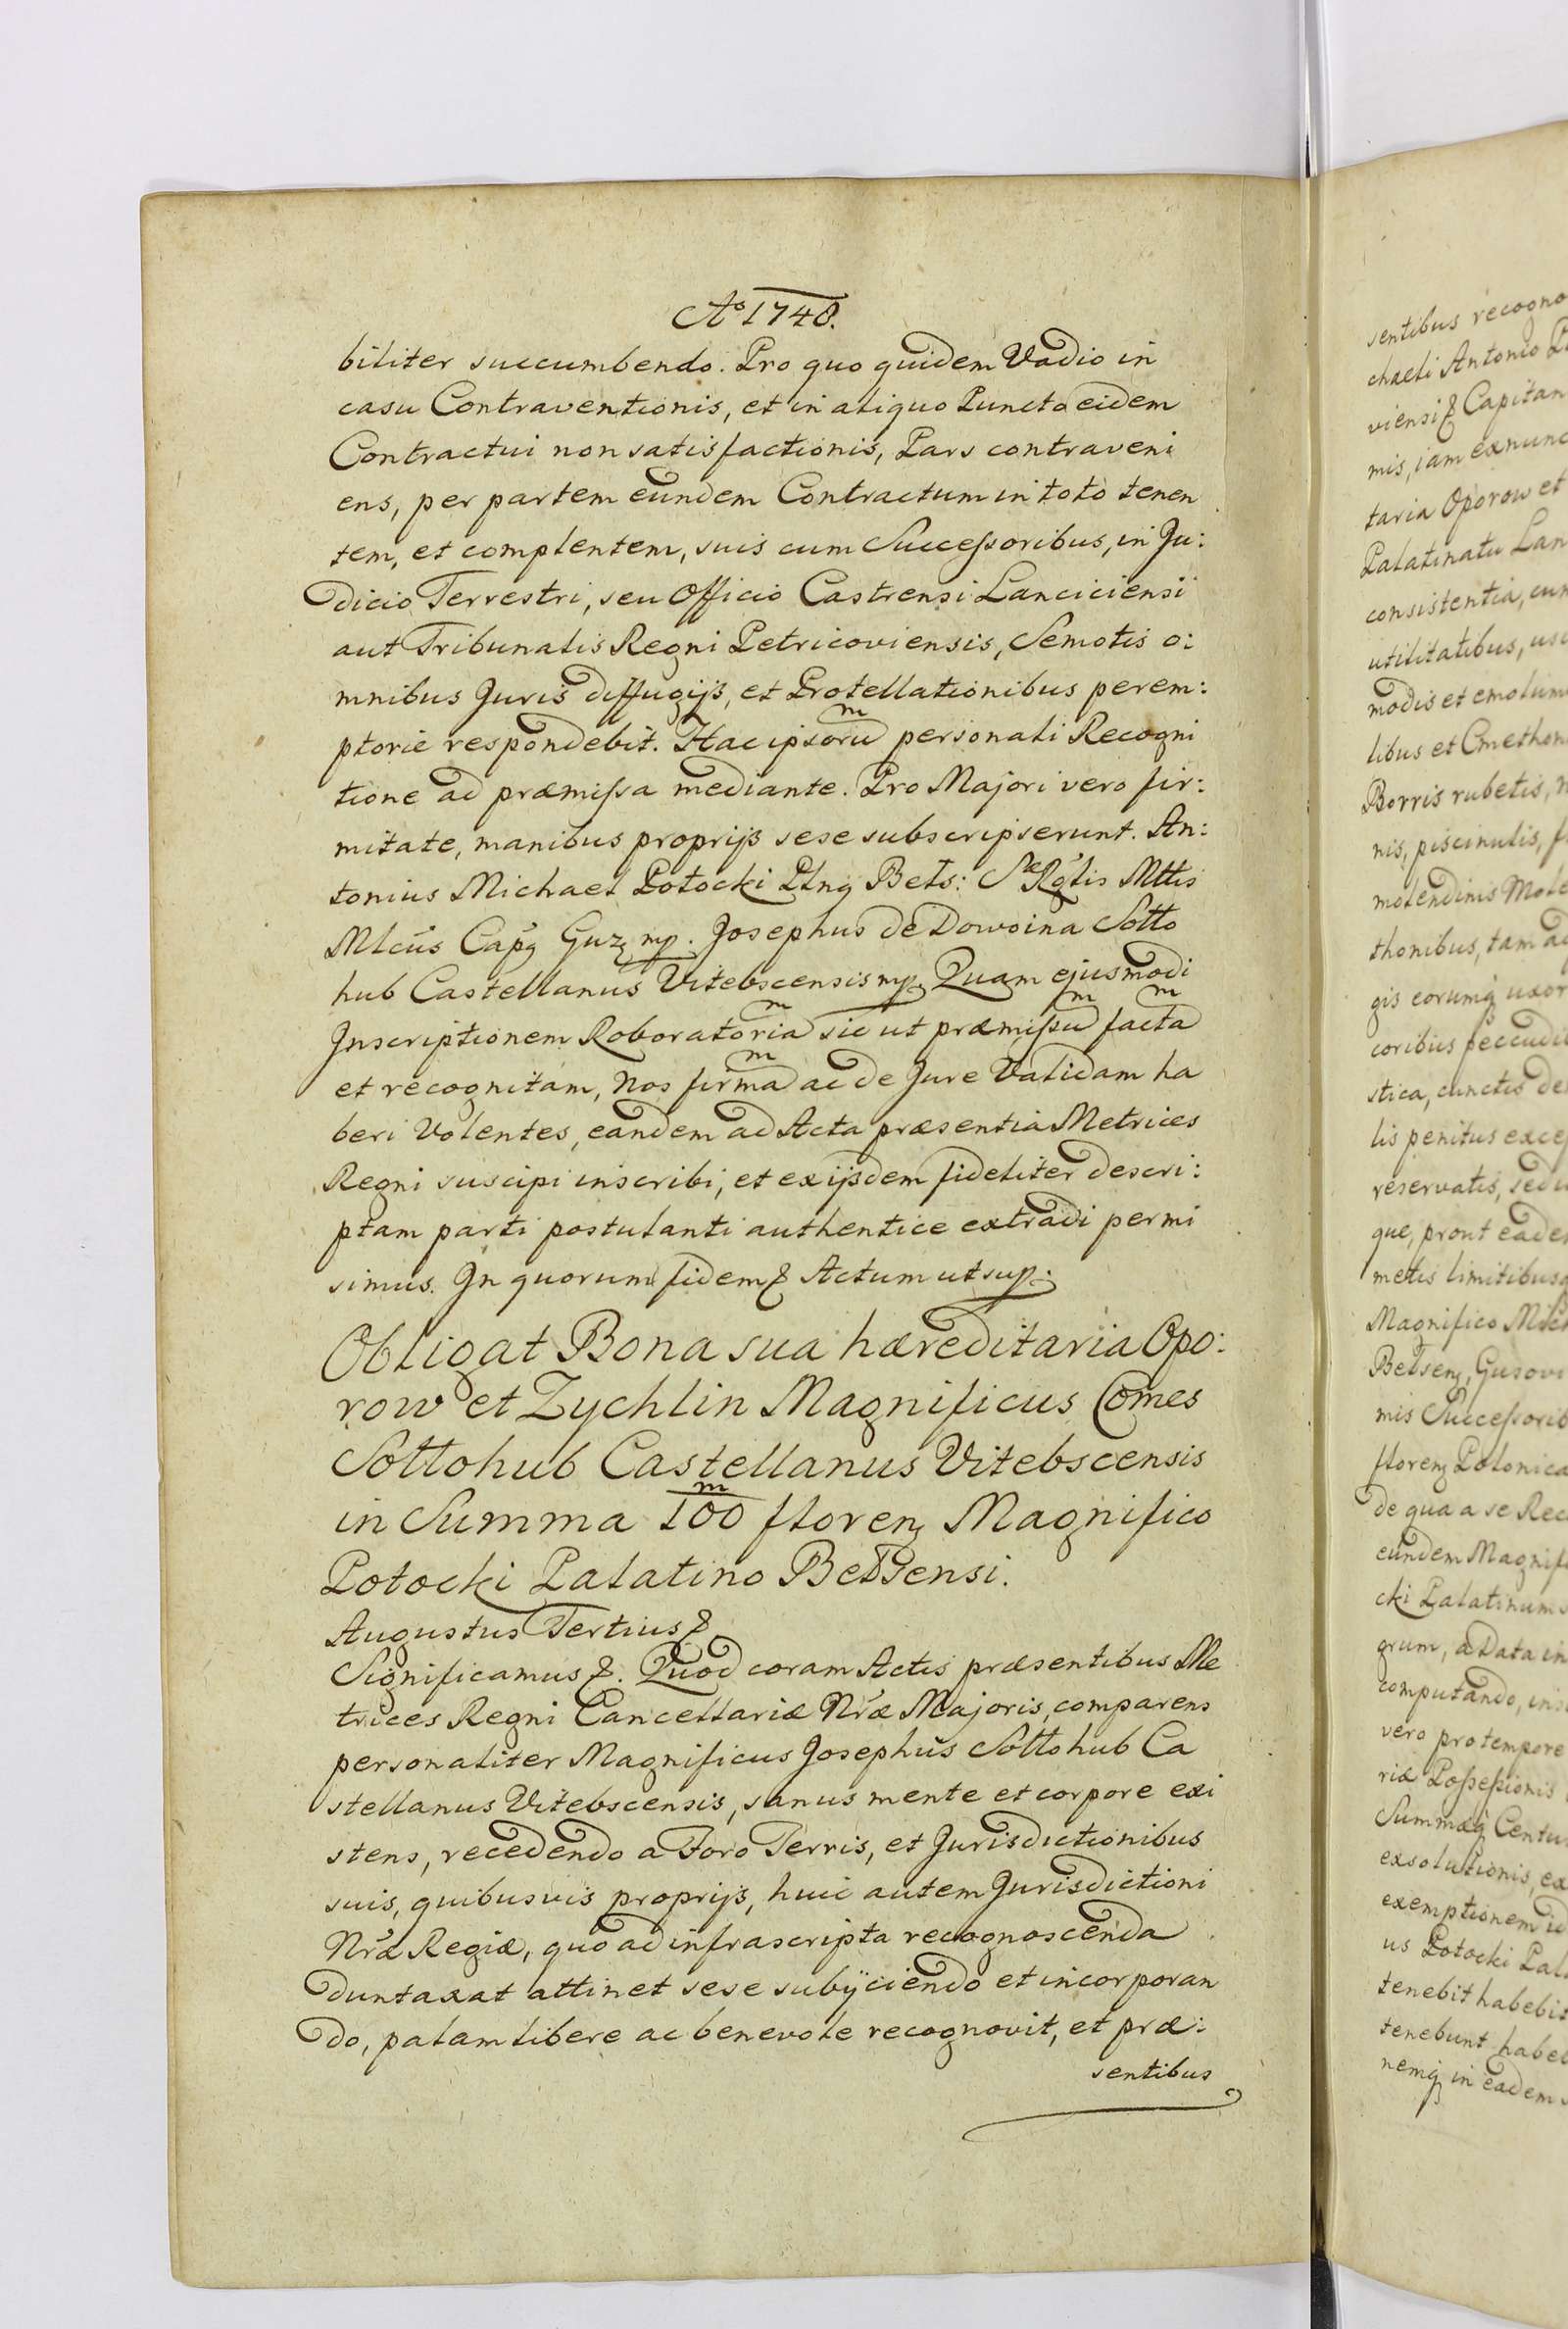 Aº 1748.
biliter succumbendo. Pro quo quidem Vadio in
casu Contraventionis, et in aliquo Puncto eidem
Contractui non satisfactionis, Pars contraveni
ens, per partem eundem Contractum in toto tenen
tem, et complentem, suis cum Succeſsoribus, in Ju:
dicio Terrestri, seu Officio Castrensi Lanciciensi
aut Tribunalis Regni Petricoviensis, Semotis o:
mnibus Juris diffugijs, et Protellationibus perem:
ptorie respondebit. Hac ipsoruᵐ personali Recogni
tione ad præmiſsa mediante. Pro Majori vero fir:
mitate, manibus proprijs sese subscripserunt. An:
tonius Michael Potocki Pltng Bełs: Sæ Rglis Mttis
Mlcus Capg Guz mp. Josephus de Dowoina Sołło
hub Castellanus Vitebscensis mp. Quam ejusmodi
Inscriptionem Roboratoriaᵐ sic ut præmiſsuᵐ factaᵐ
et recognitam, Nos firmaᵐ ac de Jure Validam ha
beri Volentes, eandem ad Acta præsentia Metrices
Regni suscipi inscribi, et ex ijsdem fideliter descri:
ptam parti postulanti authentice extradi permi
simus. In quorum fidem & Actum ut sup.
Obligat Bona sua hæreditaria Opo:
row et Zychlin Magnificus Comes
Sołłohub Castellanus Vitebscensis
in Summa 100ᵐ floren Magnifico
Potocki Palatino Bełsensi.
Augustus Tertius &
Significamus &. Quod coram Actis præsentibus Me
trices Regni Cancellariæ Nræ Majoris, comparens
personaliter Magnificus Josephus Sołłohub Ca
stellanus Vitebscensis, sanus mente et corpore exi
stens, recedendo a Foro Terris, et Jurisdictionibus
suis, quibusvis proprijs, huic autem Jurisdictioni
Nræ Regiæ, quo ad infrascripta recognoscenda
duntaxat attinet sese subijciendo et incorporan
do, palam libere ac benevole recognovit, et præ:
sentibus
sentibus recogno
chaeli Antonio
viensi & Capitan
mis, jam ex nunc
taria Oporow et
Palatinatu Lan
consistentia, cum
utilitatibus, usu
modis et emolum
libus et Cmethon
Borris rubetis,
nis, piscinulis, f
molendinis Mole
thonibus, tam
gis eorumq uxor
coribus peccudi
stica, cunctis de
lis penitus exce
reservatis, sed
que, prout eade
metis limitibus
Magnifico Mich
Bełsen, Gusovi
mis Succeſsorib
floren Polonica
de qua a se Rec
eundem Magnifi
cki Palatinum
grum, a Data in
computando, ins
vero pro tempore
riæ Poſseſsionis
Summæq Centu
exsolutionis, ex
exemptionem id
us Potocki Pala
tenebit habebit
tenebunt habeb
nemq in eadem